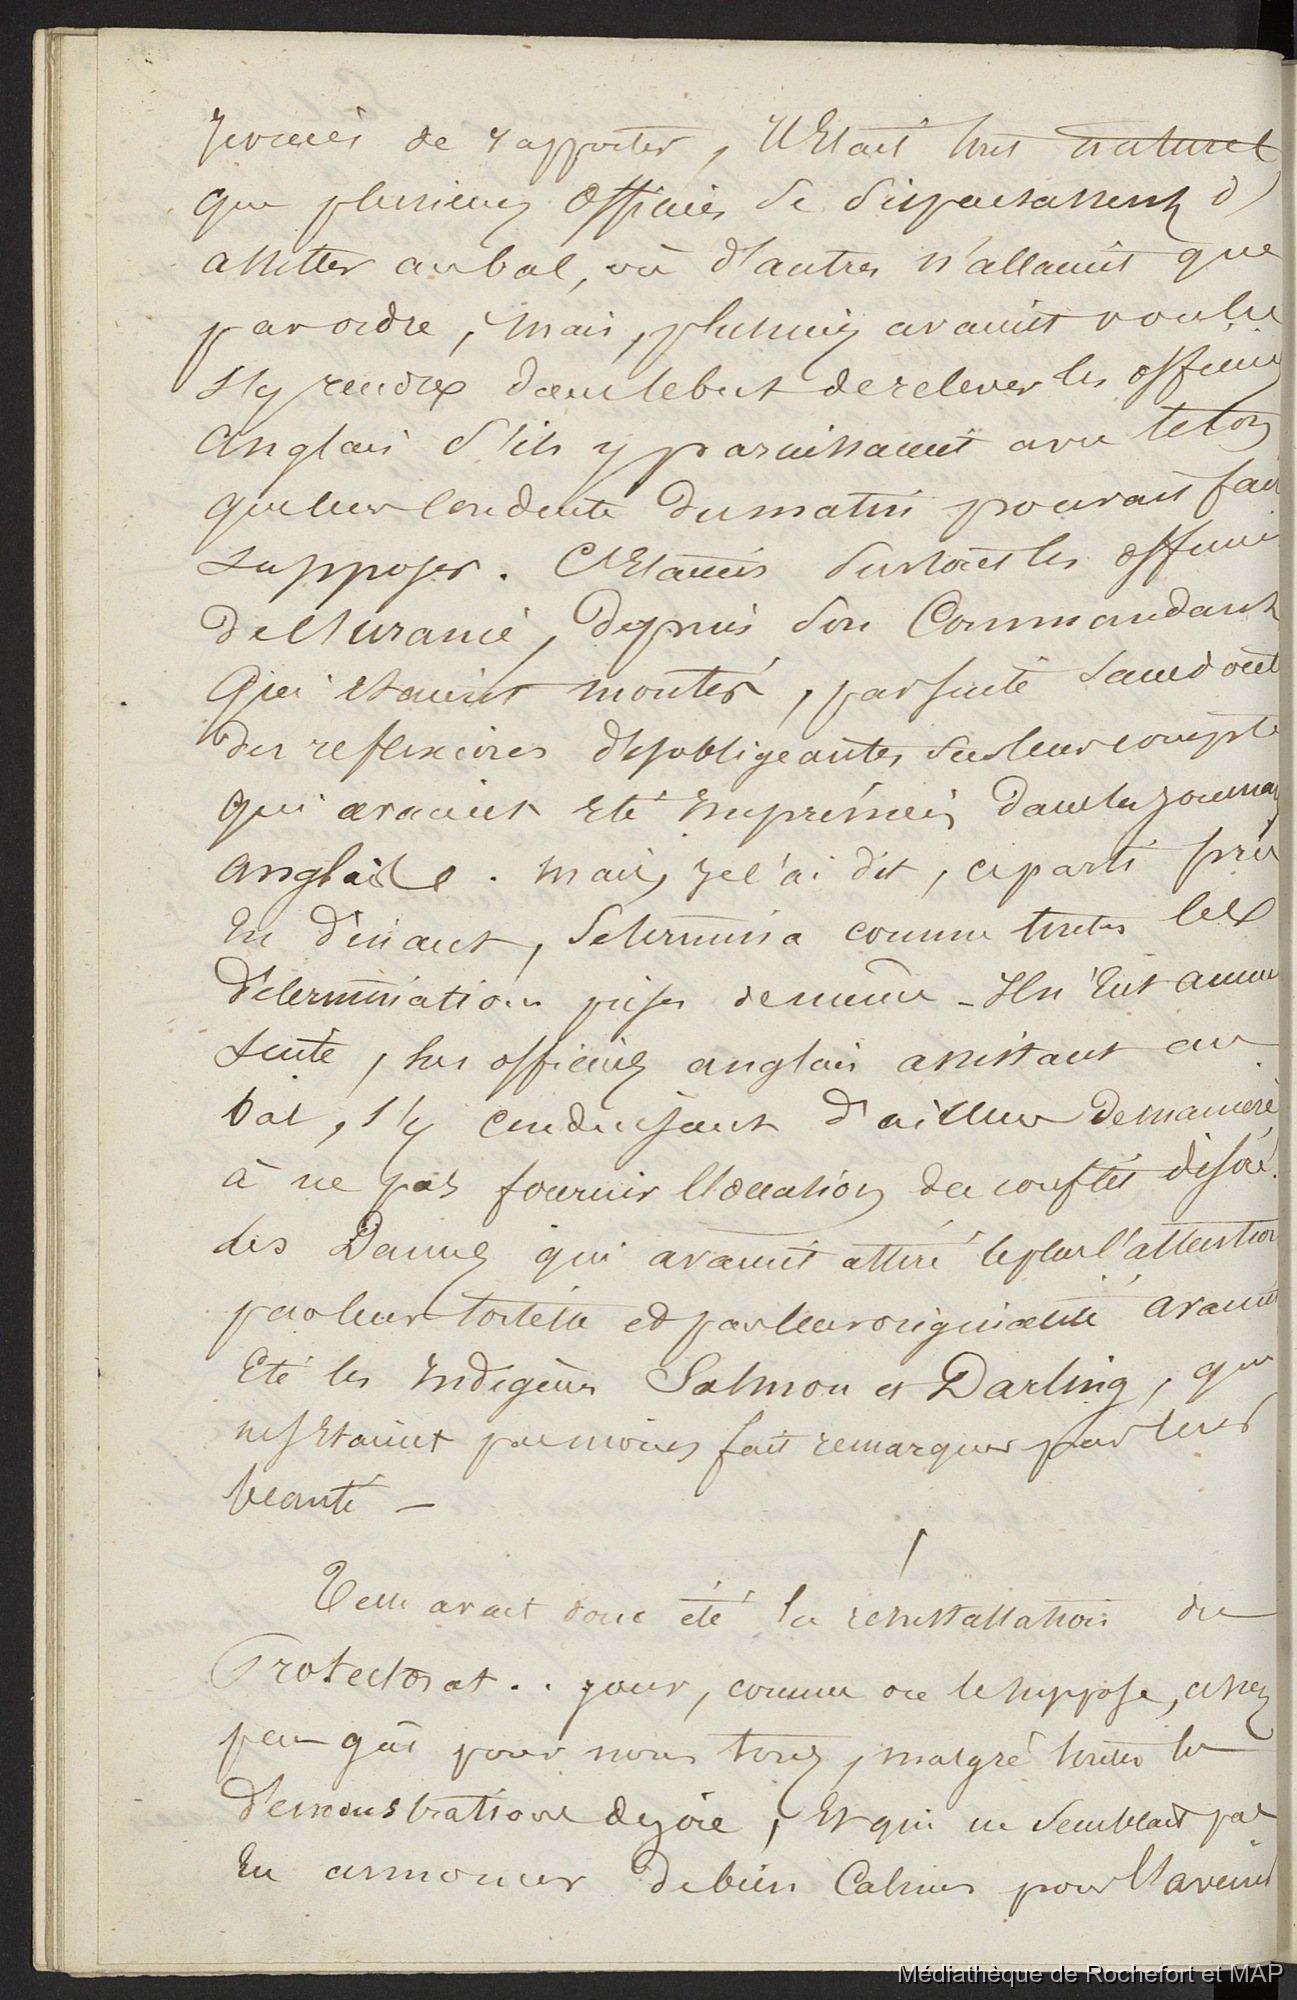 de rapporter, Il Etait tout naturel
que plusieurs officiers se dispensassent d'
assister au bal, où d'autres n'allaient que
par ordre, mais, plusieurs avaient voulu
s'y rendre dans le but de relever les officiers
anglais s'ils y paraissaient avec le ton
que leur conduite du matin pouvait faire
supposer. C'Etaient surtout les officiers
de l'Uranie, depuis son Commandant
qui Etaient montés, par suite sans doute
des reflexions désobligeantes sur leur compte
qui avaient Eté Imprimées dans les journaux
anglais. mais, je l'ai dit, ce parti pris
En dînant, se termina comme toutes les
déterminations prises de même - Il n'Eut aucune
suite, les officiers anglais assistant au
bal, s'y conduisant d'ailleurs de manière
à ne pas fournir l'occasion de conflits désirés.
les Dames qui avaient attiré le plus l'attention
par leur toilette et par leur originalité avaient
Eté les Indigènes Salmon et Darling, qui
ne s'Etaient pas moins fait remarquer par leur
beauté -
Telle avait donc été la réinstallation du
Protectorat . . jour, comme on le suppose, assez
peu gai pour nous tous, malgré toutes les
démonstrations de joie, Et qui ne semblait pas
En annoncer de bien Calmes pour l'avenir
Médiathèque de Rochefort et MAP